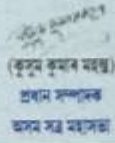 (কুসুম কুমাৰ মহন্ত)
প্ৰধান সম্পাদক
অসম সত্ৰ মহাসভা